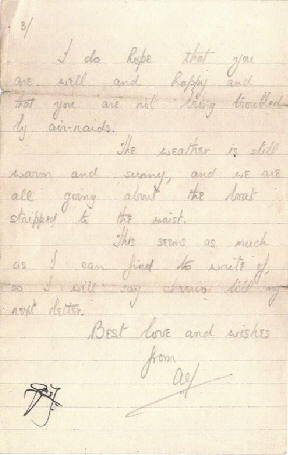 3/
I do hope that you
are well and happy and
that you are not being troubled
by air-raids.
The weather is still
warm and sunny, and we are
all going about the boat
stripped to the waist.
This seems as much
as I can find to write of,
so I will say cheerio till my
next letter.
Best love and wishes
from
Alf